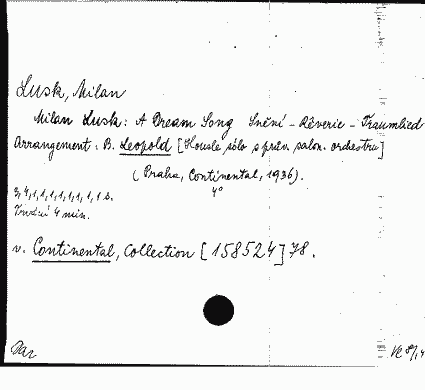 Lusk, Milan
Milan Lusk: A Dream Song Snění - Rêverie - Traumlied
Arrangement: B. Leopold [Housle sólo s prův. salon. orchestru]
(Praha, Continental, 1936).
4°
2,4,1,1,1,1,1,1,1 s.
Trvání 4 min.
v. Continental, Collection [158524] 78.
Dar